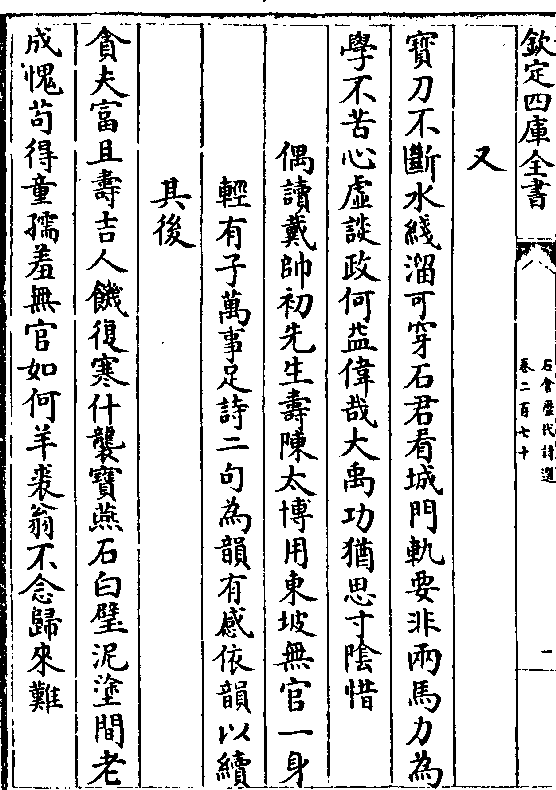 欽定四庫全書
石倉歷代詩選
卷二百七十
二
又
寶刀不斷水綫溜可穿石君看城門軌要非兩馬力為
學不苦心虛談政何益偉哉大禹功猶思寸陰惜
偶讀戴帥初先生壽陳太博用東坡無官一身
輕有子萬事足詩二句為韻有感依韻以續
其後
貪夫富且壽吉人饑復寒什襲寶燕石白璧泥塗間老
成愧苟得童孺羞無官如何羊裘翁不念歸來難